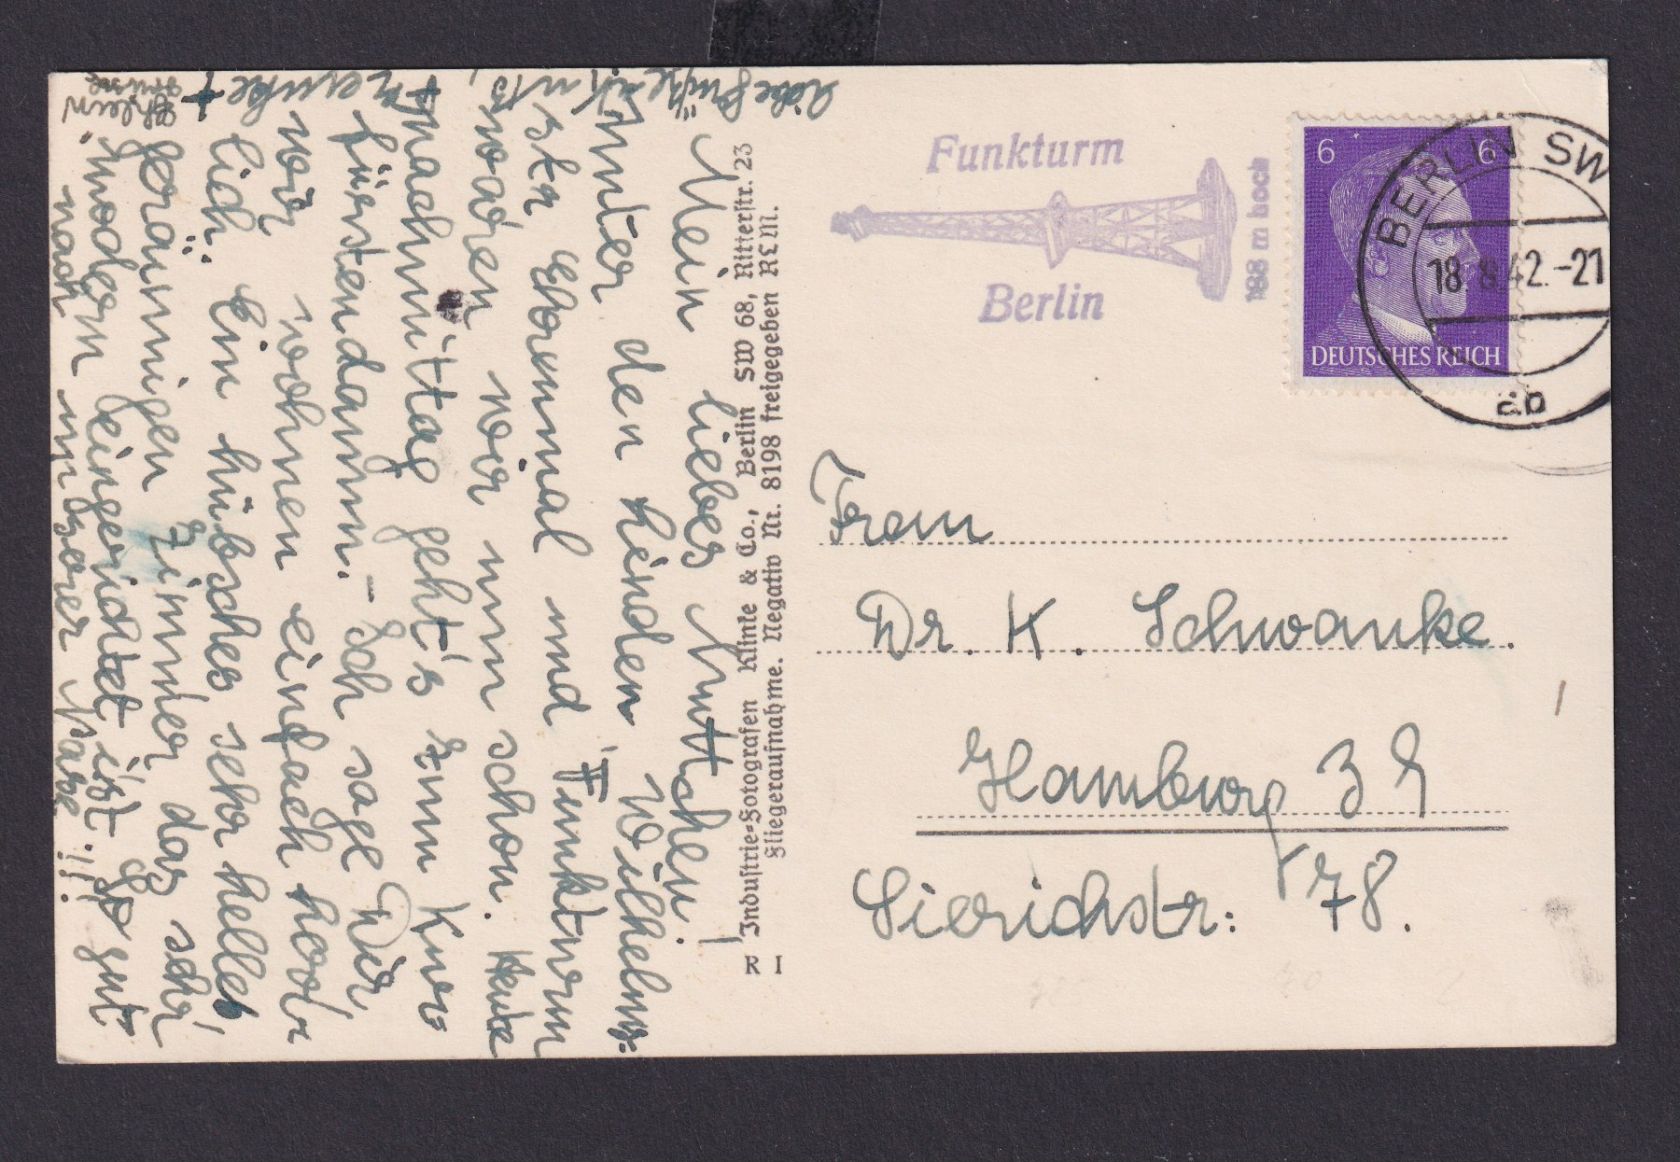 Mein liebes Muttchen!
Unter den Linden, Wilhelm-
str. 2 x mal und "Funkturm
waren wir nun schon. Heute
Nachmittag geht's zum Kur-
fürstendamm. - Ich sage Dir,
wir wohnen einfach herr-
lich. Ein hübsches sehr helles,
geräumiges Zimmer das sehr
modern eingerichtet ist. So gut
nach unserer Nase!!
Liebe Grüße
Industrie-Fotografen Klinke & Co., Berlin SW 68, Ritterstr. 23
Fliegeraufnahme. Negativ Nr. 8198 freigegeben RLM.
R I
Funkturm
Berlin
138 m hoch
6 6
DEUTSCHES REICH
BERLIN SW
18.8.42.-21
ab
Frau
Dr. K. Schwanke.
Hamburg 39
Sierichstr: 78.